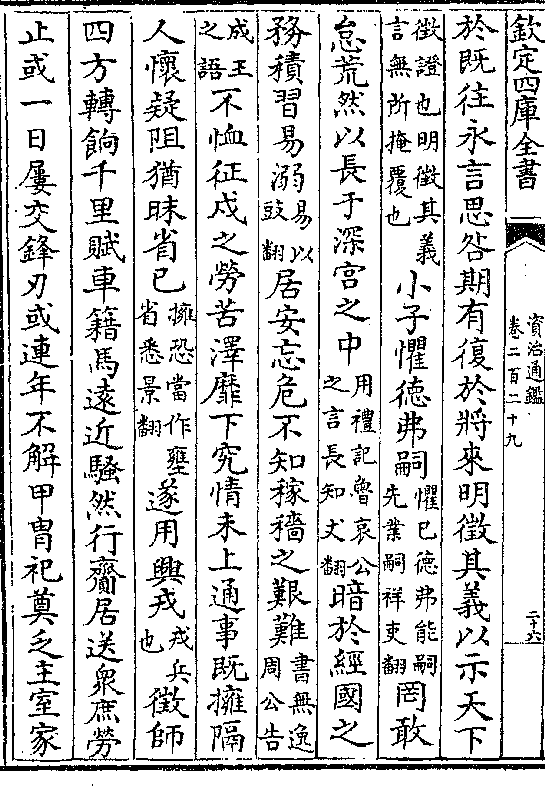 欽定四庫全書
資治通鑑
卷二百二十九
二十六
於既往永言思咎期有復於將來明徵其義以示天下
徵證也明徵其義言無所掩覆也小子懼德弗嗣懼已德弗能嗣先業嗣祥吏翻罔敢
怠荒然以長于深宫之中用禮記魯哀公之言長知丈翻暗於經國之
務積習易溺易以豉翻居安忘危不知稼穡之艱難書無逸周公告
成王之語不恤征戍之勞苦澤靡下究情未上通事既擁隔
人懷疑阻猶昧省已擁恐當作壅省悉景翻遂用興戎戎兵也徵師
四方轉餉千里賦車籍馬遠近騷然行齎居送衆庶勞
止或一日屢交鋒刃或連年不解甲胄祀奠乏主室家